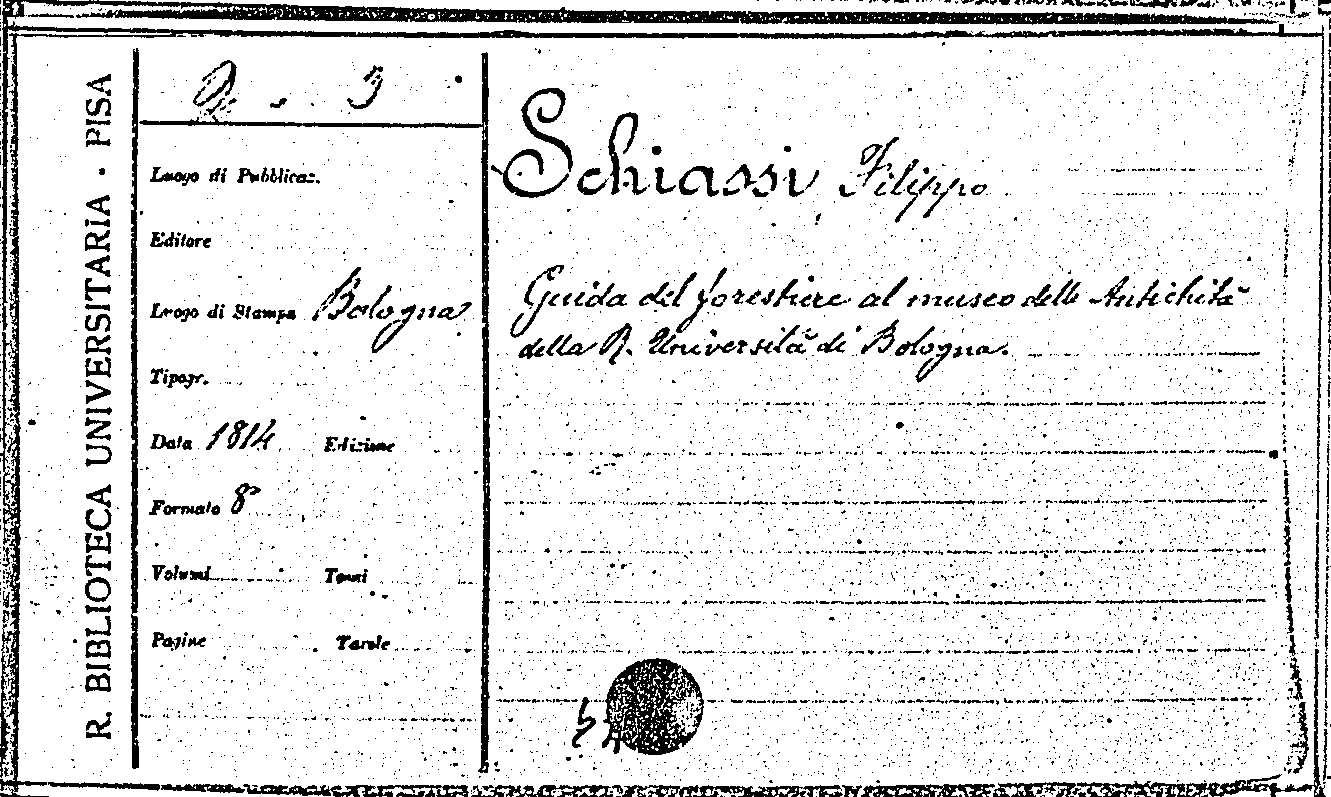 R. BIBLIOTECA UNIVERSITARIA · PISA
Luogo di Pubblicaz.
Editore
Luogo di Stampa Bologna
Tipogr.
Data 1814 Edizione
Formato 8°
Volumi Tomi
Pagine Tavole
Schiassi Filippo
Guida del forestiere al museo delle Antichità
della R. Università di Bologna.